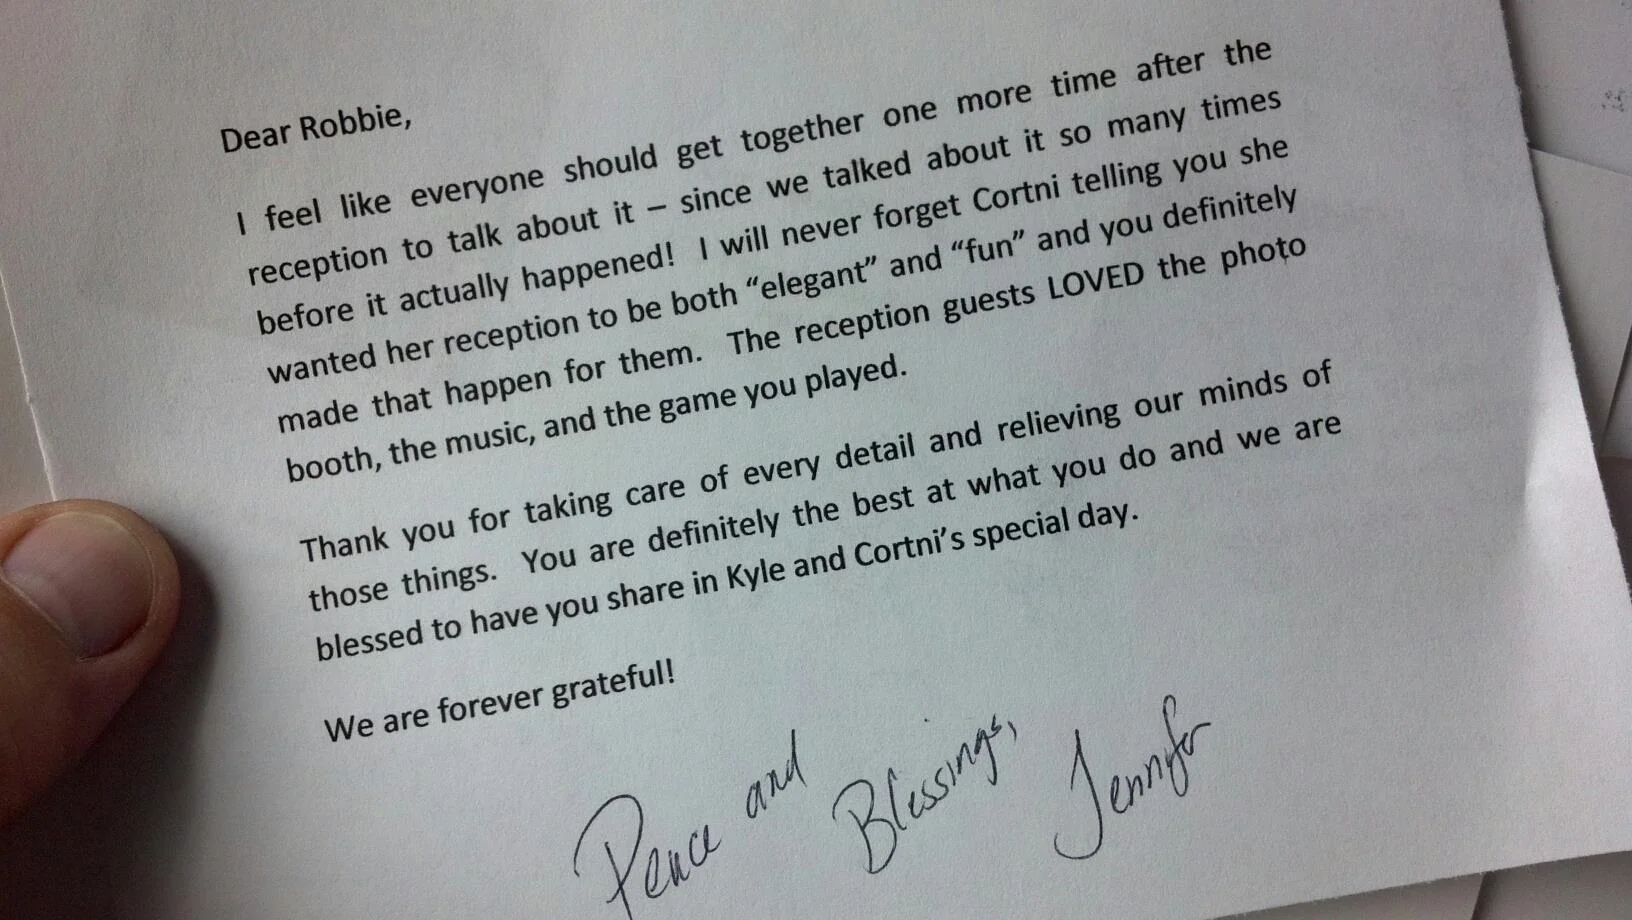 Dear Robbie,
I feel like everyone should get together one more time after the
reception to talk about it – since we talked about it so many times
before it actually happened!  I will never forget Cortni telling you she
wanted her reception to be both “elegant” and “fun” and you definitely
made that happen for them.  The reception guests LOVED the photo
booth, the music, and the game you played.
Thank you for taking care of every detail and relieving our minds of
those things.  You are definitely the best at what you do and we are
blessed to have you share in Kyle and Cortni’s special day.
We are forever grateful!
Peace and Blessings,
Jennifer